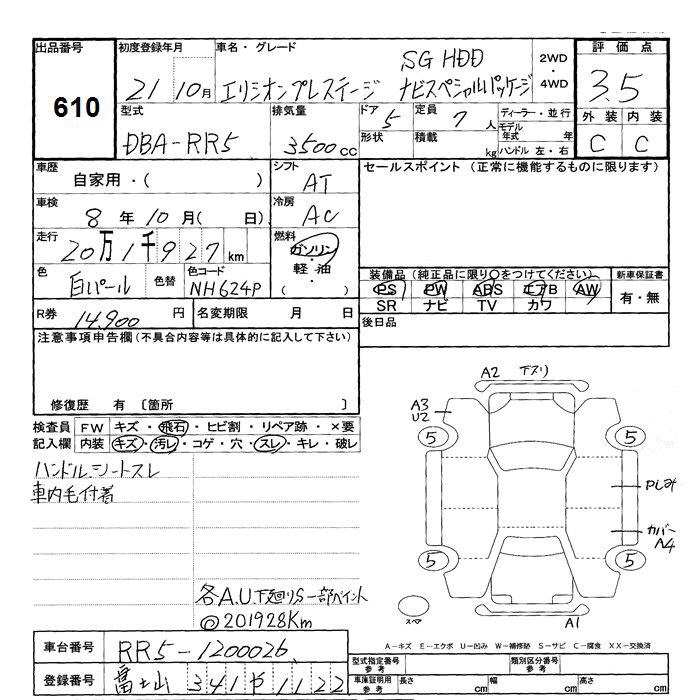 出品番号
610
初度登録年月
21 10月
車名・グレード
エリシオンプレステージ SG HDD ナビスペシャルパッケージ
2WD・4WD
評価点
3.5
型式
DBA-RR5
排気量
3500cc
ドア
5
定員
7人
形状
積載
kg
ディーラー・並行
モデル年式 年
ハンドル 左・右
外装 内装
C C
車歴
自家用・( )
シフト
AT
セールスポイント (正常に機能するものに限ります)
車検
8年10月( 日)
冷房
AC
走行
20万1千927km
燃料
ガソリン
軽・油
( )
色
白パール
色替
色コード
NH624P
装備品 (純正品に限り○をつけてください)
PS PW ABS エアB AW
SR ナビ TV カワ
新車保証書
有・無
R券 14,900円
名変期限 月 日
後日品
注意事項申告欄 (不具合内容等は具体的に記入して下さい)
修復歴 有 〔箇所 〕
検査員記入欄
FW キズ・飛石・ヒビ割・リペア跡・×要
内装 キズ・汚レ・コゲ・穴・スレ・キレ・破レ
ハンドル、シートスレ
車内毛付着
各A.U下廻りS一部ペイント
◎201928Km
A2 下スリ
A3
U2
5 5
Pしみ
カバー
A4
5 5
スペア
A1
A-キズ E-エクボ U-凹み W-補修跡 S-サビ C-腐食 XX-交換済
車台番号
RR5-1200026
登録番号
富士山 341 や 1122
型式指定番号
参考
類別区分番号
参考
車庫証明用
参考
長さ cm
幅 cm
高さ cm